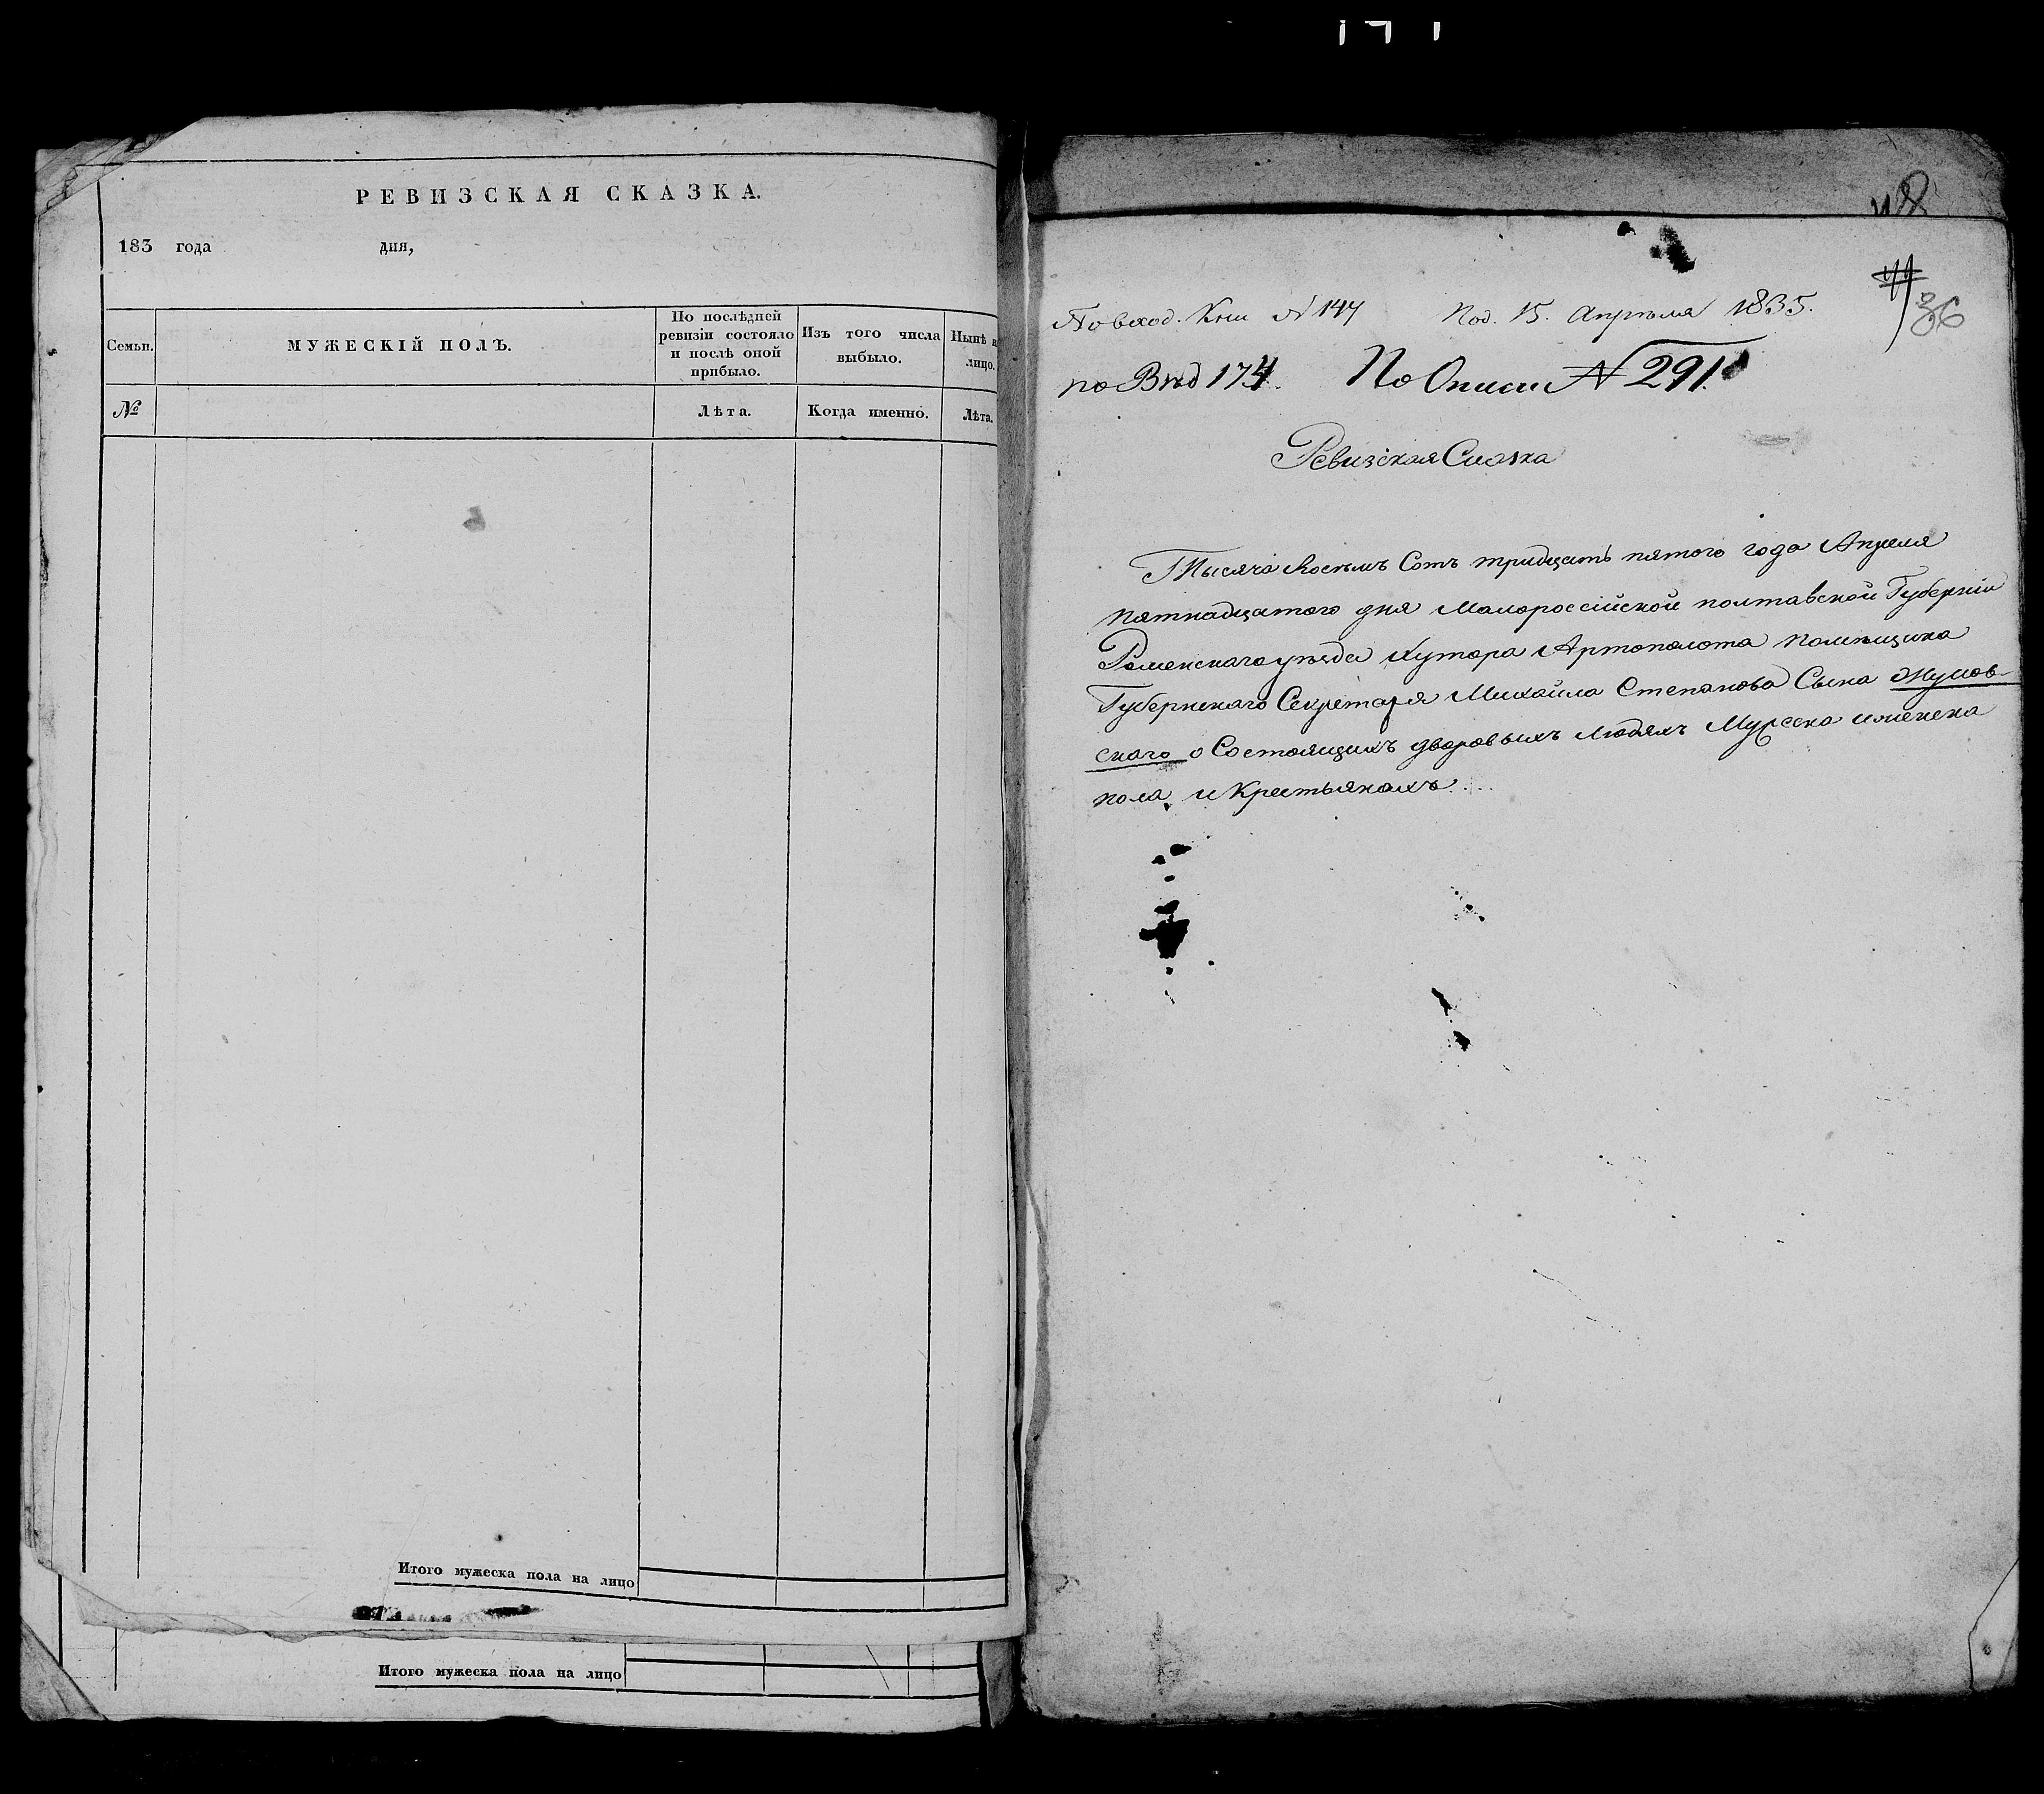 РЕВИЗСКАЯ СКАЗКА.
183 года дня,
Семьи.
МУЖЕСКІЙ ПОЛЪ.
По послѣдней
ревизіи состояло
и послѣ оной
прибыло.
Изъ того числа
выбыло.
Нынѣ н
лицо.
№
Лѣта.
Когда именно.
Лѣта.
Итого мужеска пола на лицо
Итого мужеска пола на лицо
По вход. Кни № 147 Под. 15. Апрѣля 1835.
36
по Вѣд 174. По Описи № 291.
Ревизская Сказка
Тысяча восемъ Сотъ тридцать пятого года Апреля
пятнадцатого дня Малороссійской полтавской Губерніи
Роменскаго уезда Хутора Артополота помѣщика
Губернскаго Секретаря Михайла Степанова Сына Жуков-
скаго о Состоящихъ дворовыхъ людяхъ Мужеска и женска
пола и Крестьянахъ